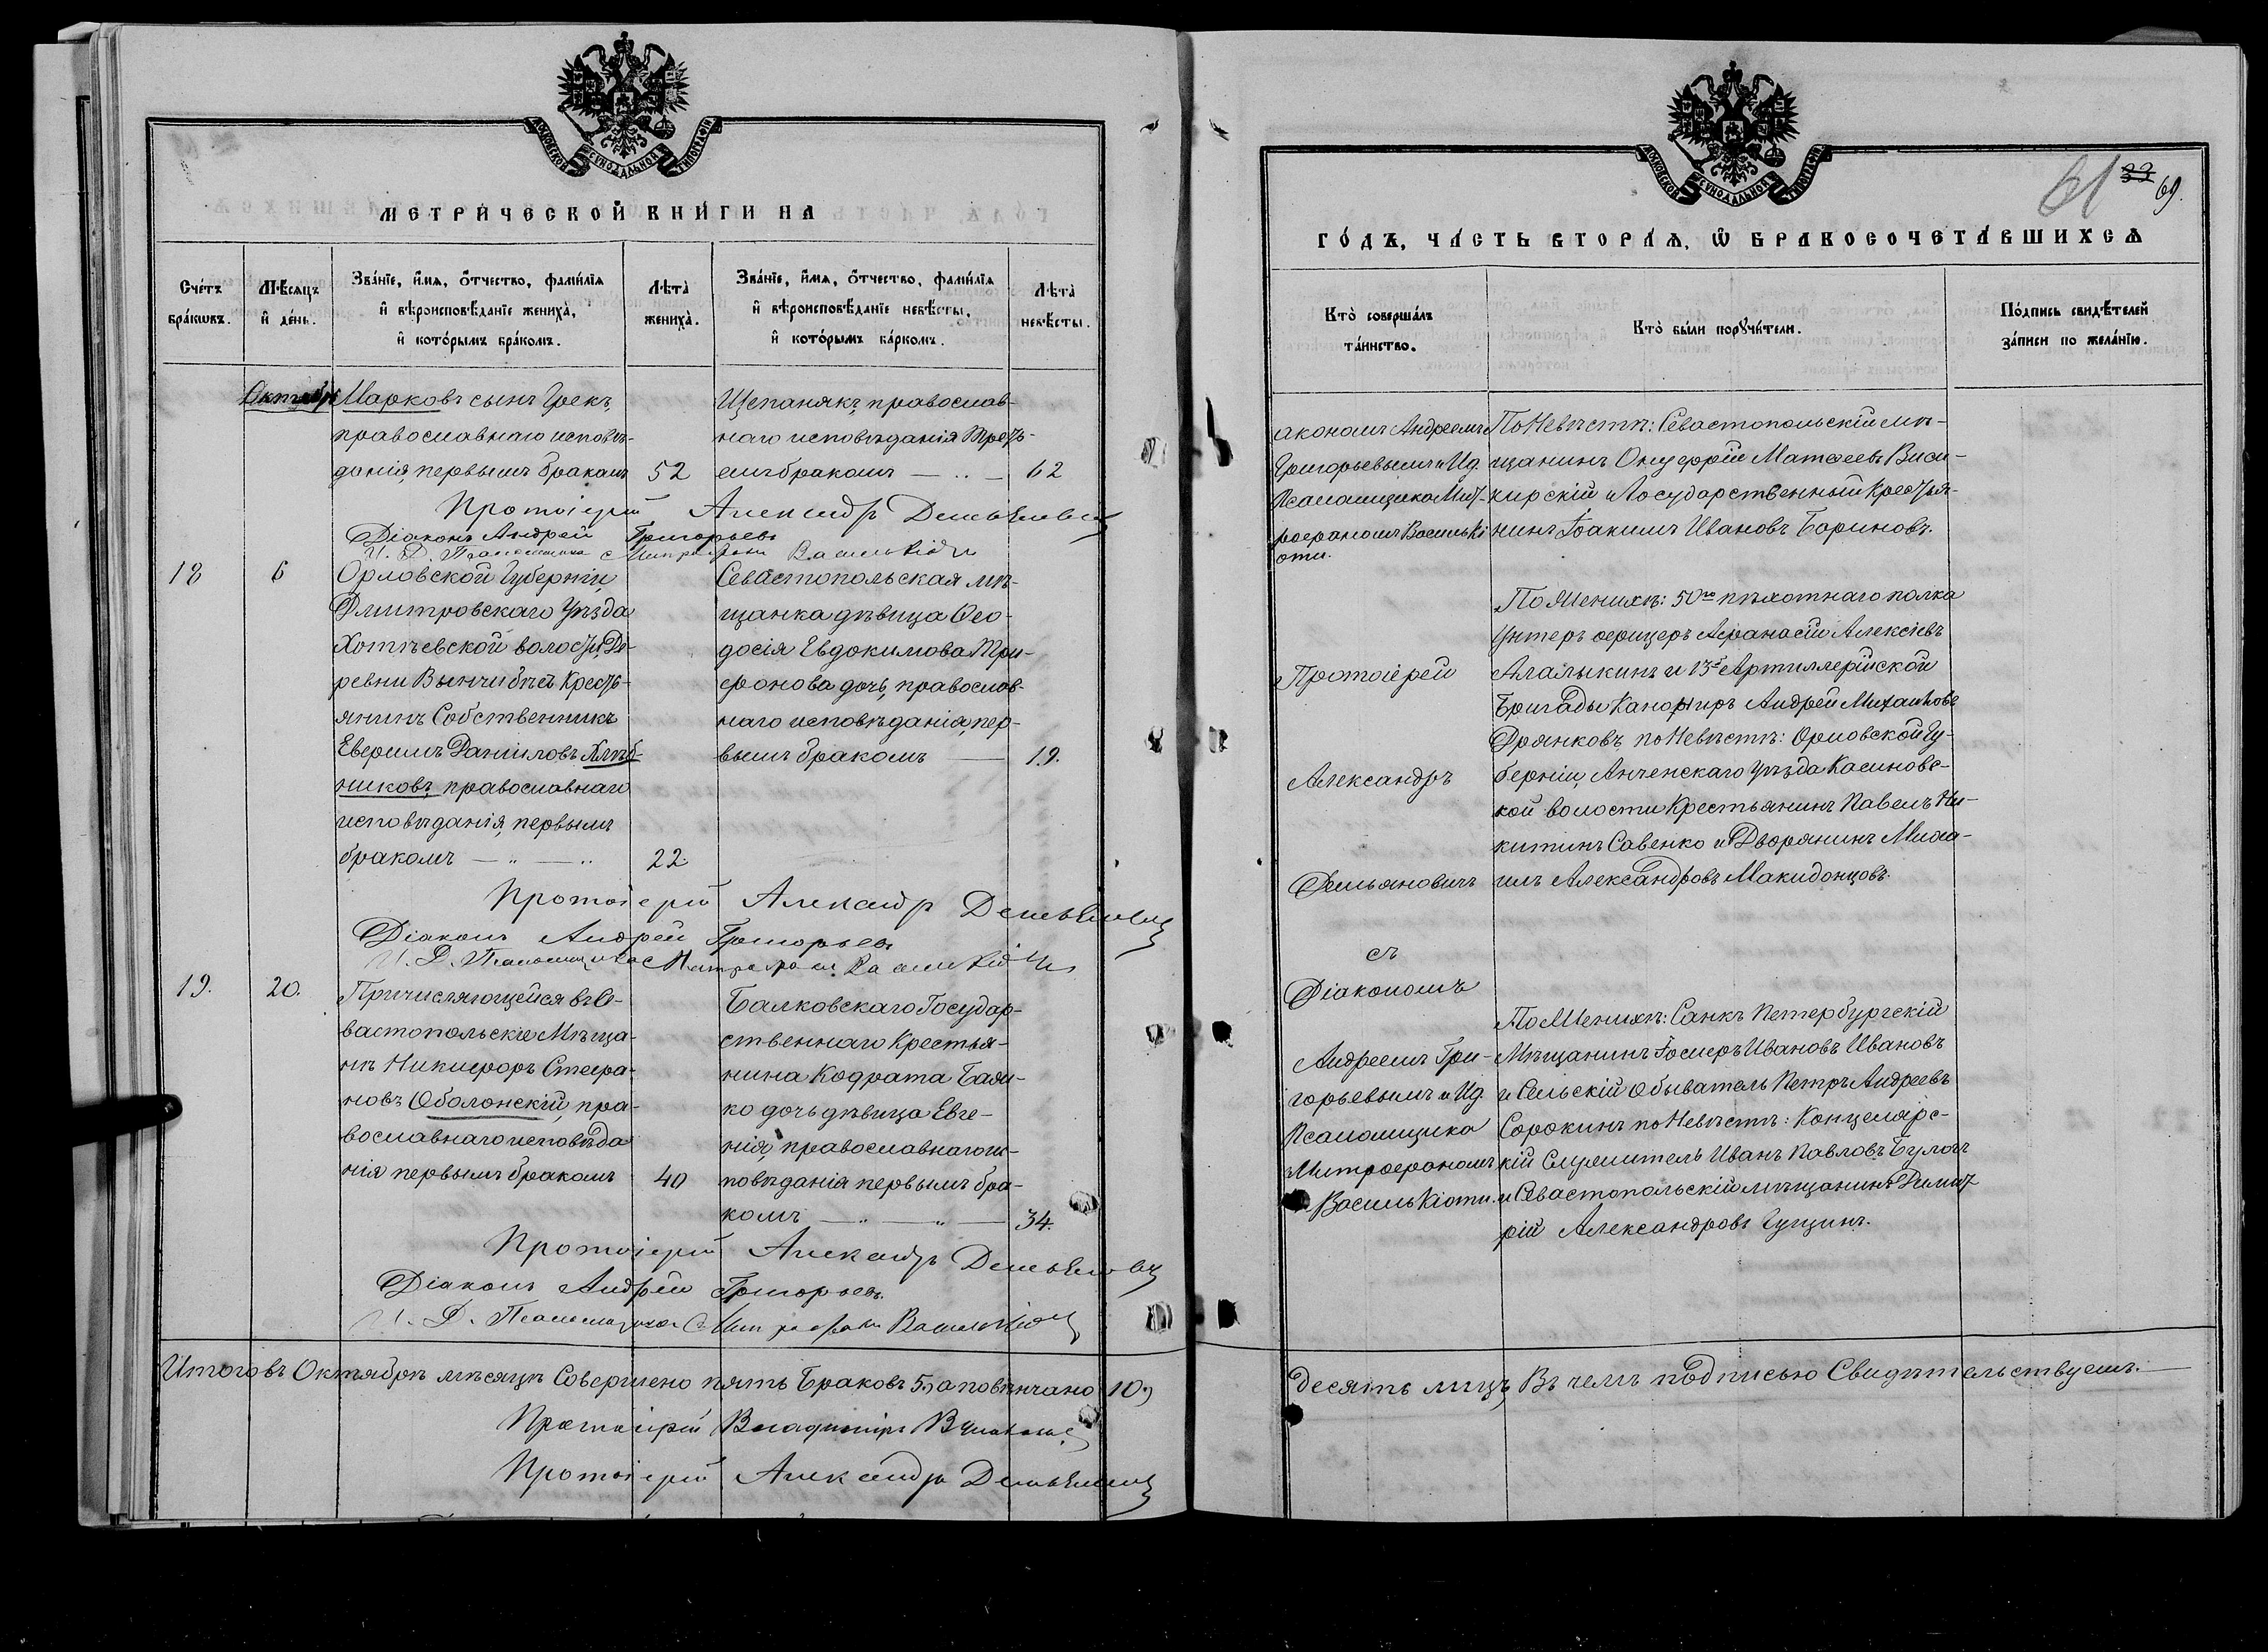 МОСКОВСКОЙ СУНОДАЛЬНОЙ ТИПОГРАФІИ
МЕТРИЧЕСКОЙ КНИГИ НА
Счетъ браковъ.
Мѣсяцъ и день.
Званіе, имя, отчество, фамилія
и вѣроисповѣданіе жениха,
и которымъ бракомъ.
Лѣта жениха.
Званіе, имя, отчество, фамилія
и вѣроисповѣданіе невѣсты,
и которымъ баркомъ.
Лѣта невѣсты.
Октябрь
Марковъ сынъ Грекъ,
православнаго исповѣ-
данія, первымъ бракомъ 52
Щепанякъ, православ-
наго исповѣданія треть-
имъ бракомъ 62
Протоіерей Александръ Демьяновичъ
Діаконъ Андрей Григорьевъ
И. Д. Псаломщика Митрофанъ Василькіоти
18 6
Орловской Губерніи,
Дмитровскаго Уѣзда
Хотѣевской волости, Де-
ревни крестъ-
янинъ Собственникъ
Евфимъ Даниловъ Хлѣб-
никовъ, православнаго
исповѣданія, первымъ
бракомъ 22.
Севастопольская мѣ-
щанка дѣвица Ѳео-
досія Евдокимова Три-
фонова дочь, православ-
наго исповѣданія, пер-
вымъ бракомъ 19.
Протоіерей Александръ Демьяновичъ
Діаконъ Андрей Григорьевъ
И. Д. Псаломщика Митрофанъ Василькіоти
19. 20.
Причисляющейся въ Се-
вастопольскіе Мѣща-
нѣ Никифоръ Стефа-
новъ Оболонскій, пра-
вославнаго исповѣда
нія первымъ бракомъ 40
Балковскаго Государ-
ственнаго Крестья-
нина Кодрата
ко дочь дѣвица Евге-
нія, православнаго ис-
повѣданія первымъ бра-
комъ 34.
Протоіерей Александръ Демьяновичъ
Діаконъ Андрей Григорьевъ.
И. Д. Псаломщика Митрофанъ Василькіоти
Итого въ Октябрѣ мѣсяцѣ Совершено пять Браковъ 5, а повѣнчано 10,
Протоіерей Владиміръ
Протоіерей Александръ Демьяновичъ
МОСКОВСКОЙ СУНОДАЛЬНОЙ ТИПОГРАФІИ
61 33 69.
ГОДЪ, ЧАСТЬ ВТОРАЯ, Ѿ БРАКОСОЧЕТАВШИХСЯ
Кто совершалъ таинство.
Кто были поручители.
Подпись свидѣтелей
записи по желанію.
акономъ Андреемъ
Григорьевымъ и Ид.
Псаломщика Мит-
рофаномъ Василькі
оти.
По Невѣстѣ: Севастопольскій мѣ-
щанинъ Онуфрій Матѳеевъ Виси-
кирскій и Государственный Крестья-
нинъ Іоакимъ Ивановъ Бориновъ.
Протоіерей
Александръ
Демьяновичъ
съ
Діакономъ
Андреемъ Гри-
горьевымъ и Ид.
Псаломщика
Митрофаномъ
Василькіоти.
По Женихѣ: 50го пѣхотнаго полка
Унтеръ офицеръ Афанасій Алексіевъ
Алалыкинъ и 13й Артиллерійской
Бригады Канониръ Андрей Михайловъ
Дрянковъ, по Невѣстѣ: Орловской Гу-
берніи, Уѣзда Касиновс-
кой волости Крестьянинъ Павелъ Ни-
китинъ Савенко и Дворянинъ Миха-
илъ Александровъ Макидонцовъ.
По Женихѣ: Санкъ Петербургскій
Мѣщанинъ Іосифъ Ивановъ Ивановъ
и Сельскій обыватель Петръ Андреевъ
Сорокинъ по Невѣстѣ: Концелярс-
кій Служитель Иванъ Павловъ
и Севастопольскій мѣщанинъ Димит
рій Александровъ Гущинъ.
десять лицъ, Въ чемъ подписью Свидѣтельствуемъ.